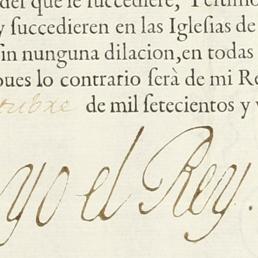 del que le succediere, Y
y succedieren en las Iglesias de
sin nunguna dilacion, en todas
pues lo contrario serà de mi Re
ctubre de mil setecientos y v
yo el Rey.